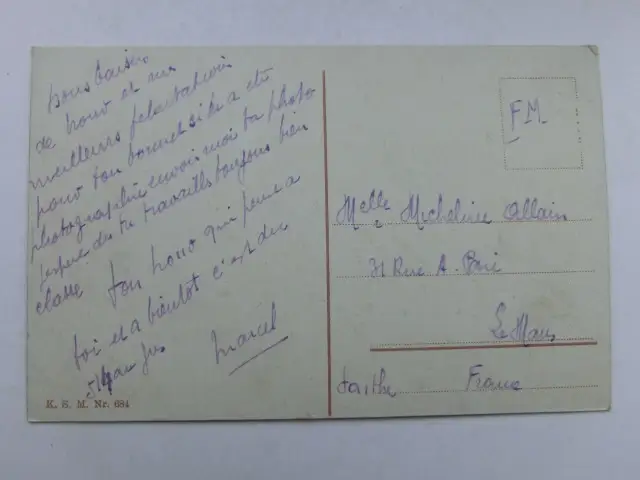 bons baisers
de Nono et mes
meilleures félicitations
pour ton bonnet si il a été
photographié envoi moi ta photo
j'espère que tu travaills toujours bien
classe ton qui pense a
toi et a bientot c'est dur
Marcel
K. S. M. Nr. 684
FM
Melle Micheline Allain
31 Rue A. Paré
Le Mans
Sarthe France